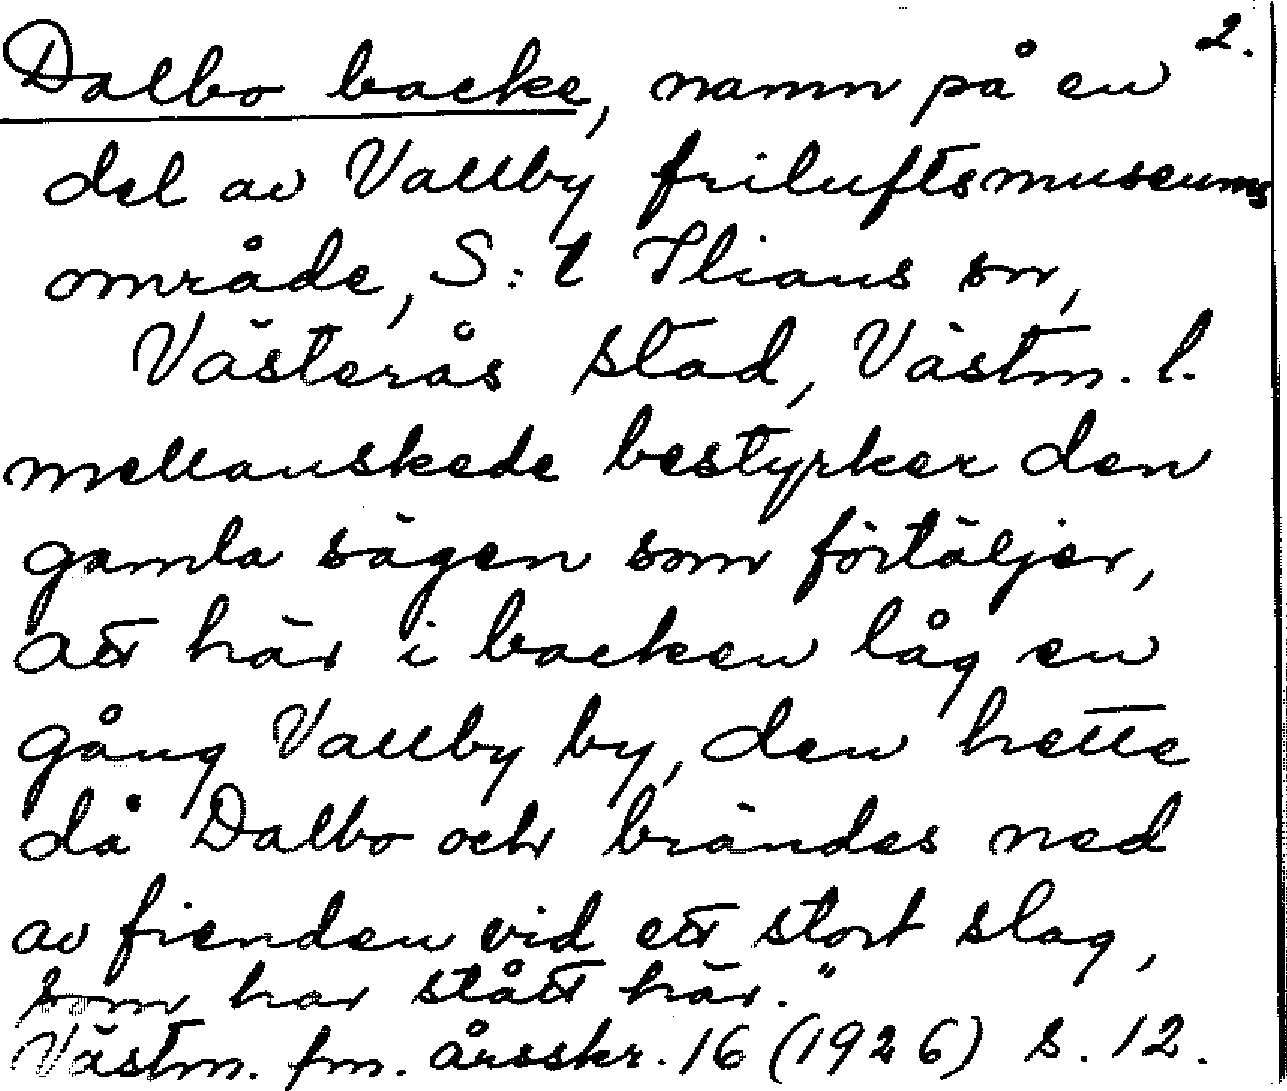 2.
Dalbo backe, namn på en
del av Vallby friluftsmuseums
område, S:t Ilians sn,
Västerås stad, Västm. l.
mellanskede bestyrker den
gamla sägen som förtäljer,
att här i backen låg en
gång Vallby by, den hette
då Dalbo och brändes ned
av fienden vid ett stort slag,
som har stått här."
Västm. fm. årsskr. 16 (1926) s. 12.